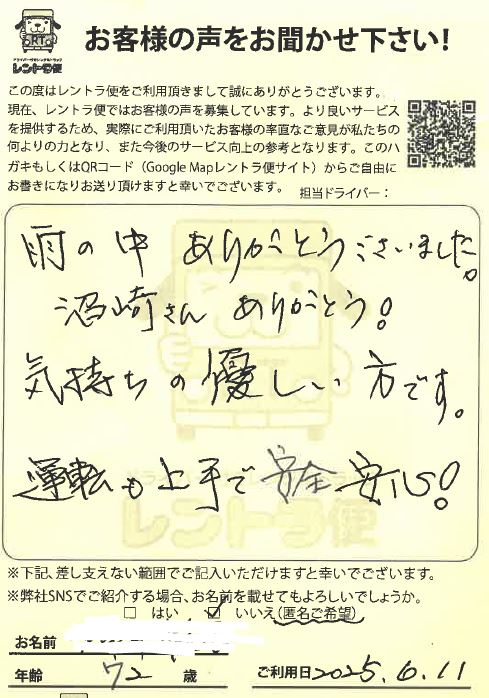 RT
ドライバー付きレンタルトラック
レントラ便
お客様の声をお聞かせ下さい!
この度はレントラ便をご利用頂きまして誠にありがとうございます。
現在、レントラ便ではお客様の声を募集しています。より良いサービス
を提供するため、実際にご利用頂いたお客様の率直なご意見が私たちの
何よりの力となり、また今後のサービス向上の参考となります。このハ
ガキもしくはQRコード（Google Mapレントラ便サイト）からご自由に
お書きになりお送り頂けますと幸いでございます。
担当ドライバー：
雨の中 ありがとうございました。
沼崎さん ありがとう!
気持ちの優しい方です。
運転も上手で安全安心!
レントラ便
※下記、差し支えない範囲でご記入いただけますと幸いでございます。
※弊社SNSでご紹介する場合、お名前を載せてもよろしいでしょうか。
□ はい ☑ いいえ(匿名ご希望)
お名前
年齢 72 歳 ご利用日2025.6.11